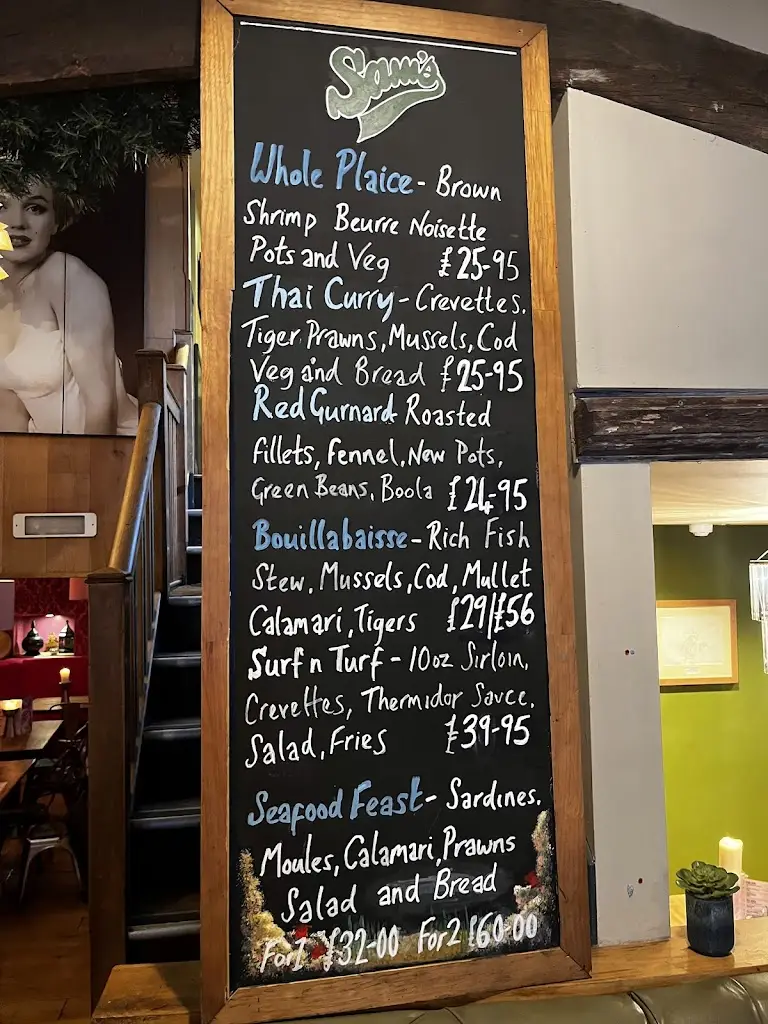 Sam's
Whole Plaice - Brown
Shrimp Beurre Noisette
Pots and Veg £25-95
Thai Curry - Crevettes,
Tiger Prawns, Mussels, Cod
Veg and Bread £25-95
Red Gurnard Roasted
fillets, Fennel, New Pots,
Green Beans, Boola £24-95
Bouillabaisse - Rich Fish
Stew, Mussels, Cod, Mullet
Calamari, Tigers £29/£56
Surf n Turf - 10oz Sirloin,
Crevettes, Thermidor Sauce,
Salad, Fries £39-95
Seafood Feast - Sardines,
Moules, Calamari, Prawns
Salad and Bread
For 1 £32-00 For 2 £60-00